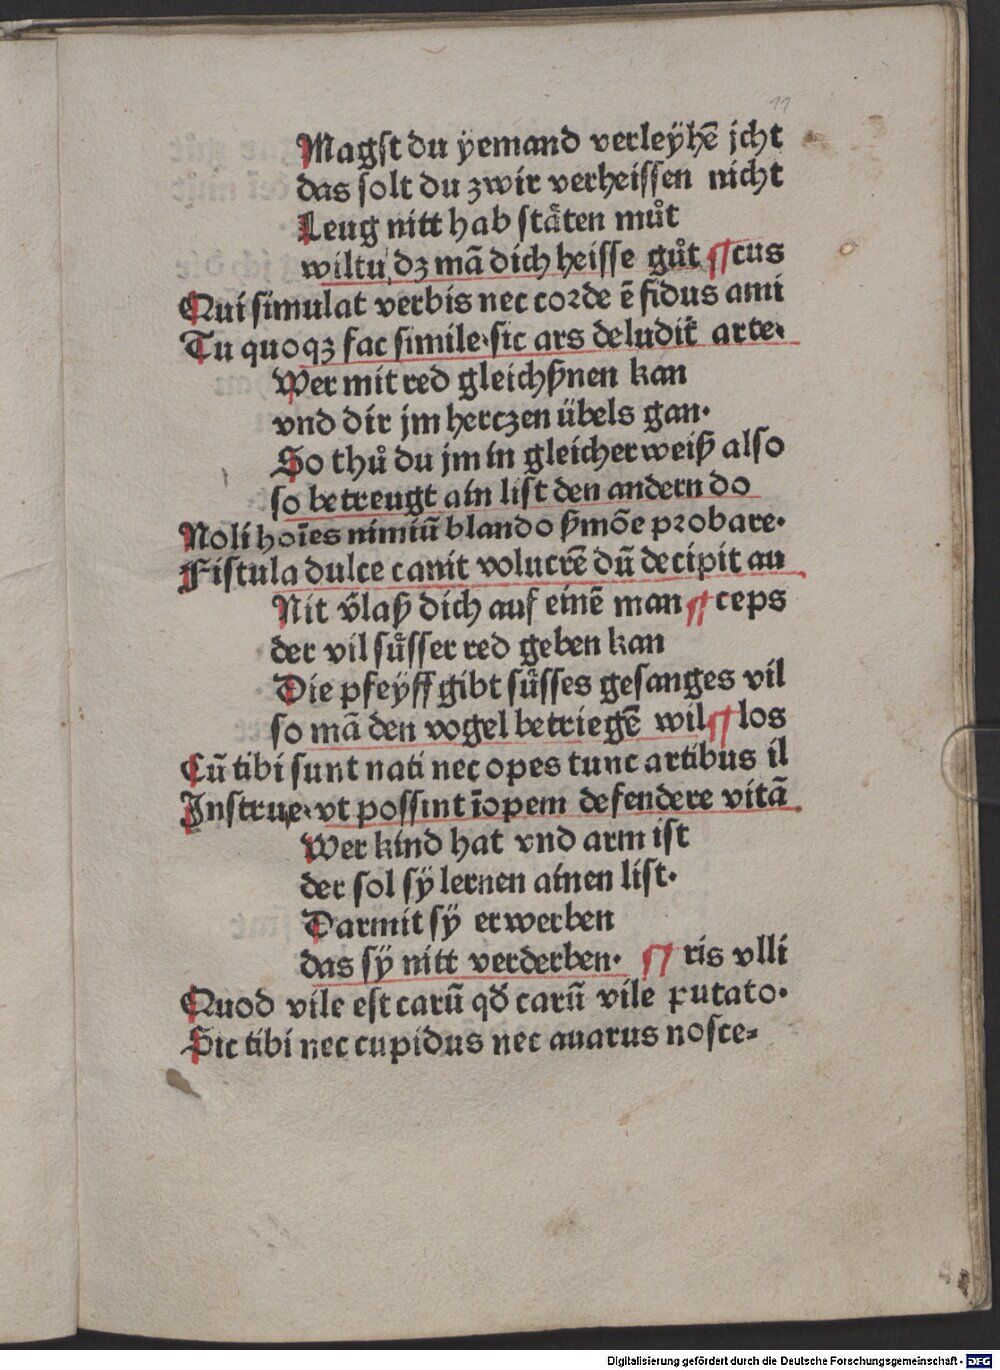 11
Magst du ÿemand verleÿhē jcht
das solt du zwir verheissen nicht
Leug nitt hab stäten můt
wiltu dz mā dich heisse gůt ¶ cus
Qui simulat verbis nec corde ē fidus ami
Tu quoqꝫ fac simile·sic ars deludit᷑ arte·
Wer mit red gleichßnen kan
vnd dir jm herczen übels gan·
So thů du jm in gleicher weiß also
so betreugt ain list den andern do
Noli hoīes nimiū blando ẜmōe probare·
Fistula dulce canit volucrē dū decipit au
Nit v̄laß dich auf einē man ¶ ceps
der vil sůsser red geben kan
Die pfeÿff gibt süsses gesanges vil
so mā den vogel betriegē wil ¶ los
Cū tibi sunt nati nec opes tunc artibus il
Instrue·vt possint īopem defendere vitā
Wer kind hat vnd arm ist
der sol sÿ lernen ainen list·
Darmit sÿ erwerben
das sÿ nitt verderben· ¶ ris vlli
Quod vile est carū qḋ carū vile putato·
Sic tibi nec cupidus nec auarus nosce=
Digitalisierung gefördert durch die Deutsche Forschungsgemeinschaft - DFG